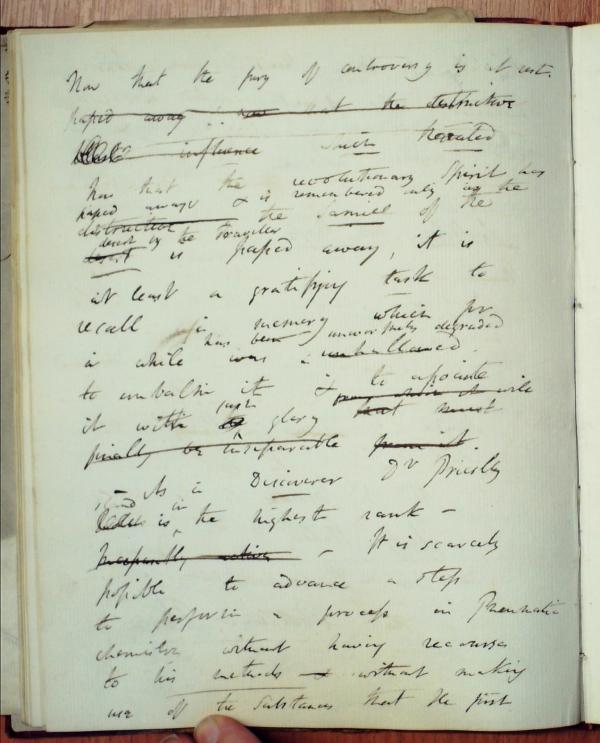 Now that the fury of controversy is at rest.
passed away & now that the destructive
influence which treated
Now that the revolutionary Spirit has
passed away & is remembered only as the
destructive the Samiel of the
desert by the traveller
is passed away, it is
at least a gratifying task to
recall a memory which for
has been unworthily degraded
a while was
to embalm it & to associate
it with glory
just
finally be inseparable from it.
– As a Discoverer Dr Priestly
stand in
is the highest rank –
– It is scarcely
possible to advance a step
to perform a process in Pneumatic
chemistry without having recourse
to his methods without making
use of the substances that he first